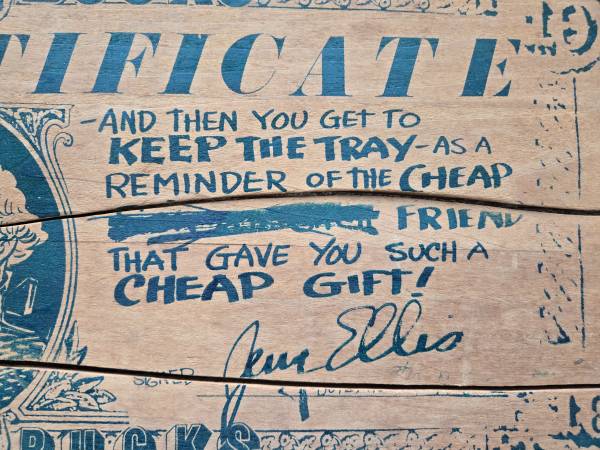 TIFICATE
-AND THEN YOU GET TO
KEEP THE TRAY-AS A
REMINDER OF THE CHEAP
FRIEND
THAT GAVE YOU SUCH A
CHEAP GIFT!
SIGNED
BUCKS